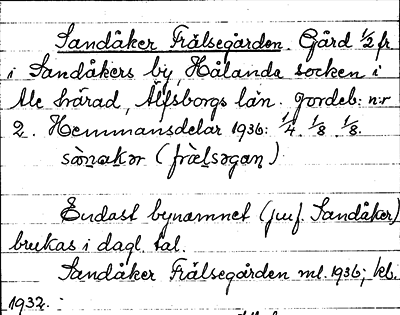 Sandåker Frälsegården. Gård 1/2 fr.
i Sandåkers by, Hålanda socken i
Ale härad, Älfsborgs län. Jordeb: n:r
2. Hemmansdelar 1936: 1/4. 1/8. 1/8.
sànakər (fræ̀lsəgaɳ)
Endast bynamnet (jmf. Sandåker)
brukas i dagl. tal.
Sandåker Frälsegården ml. 1936; kb.
1932.